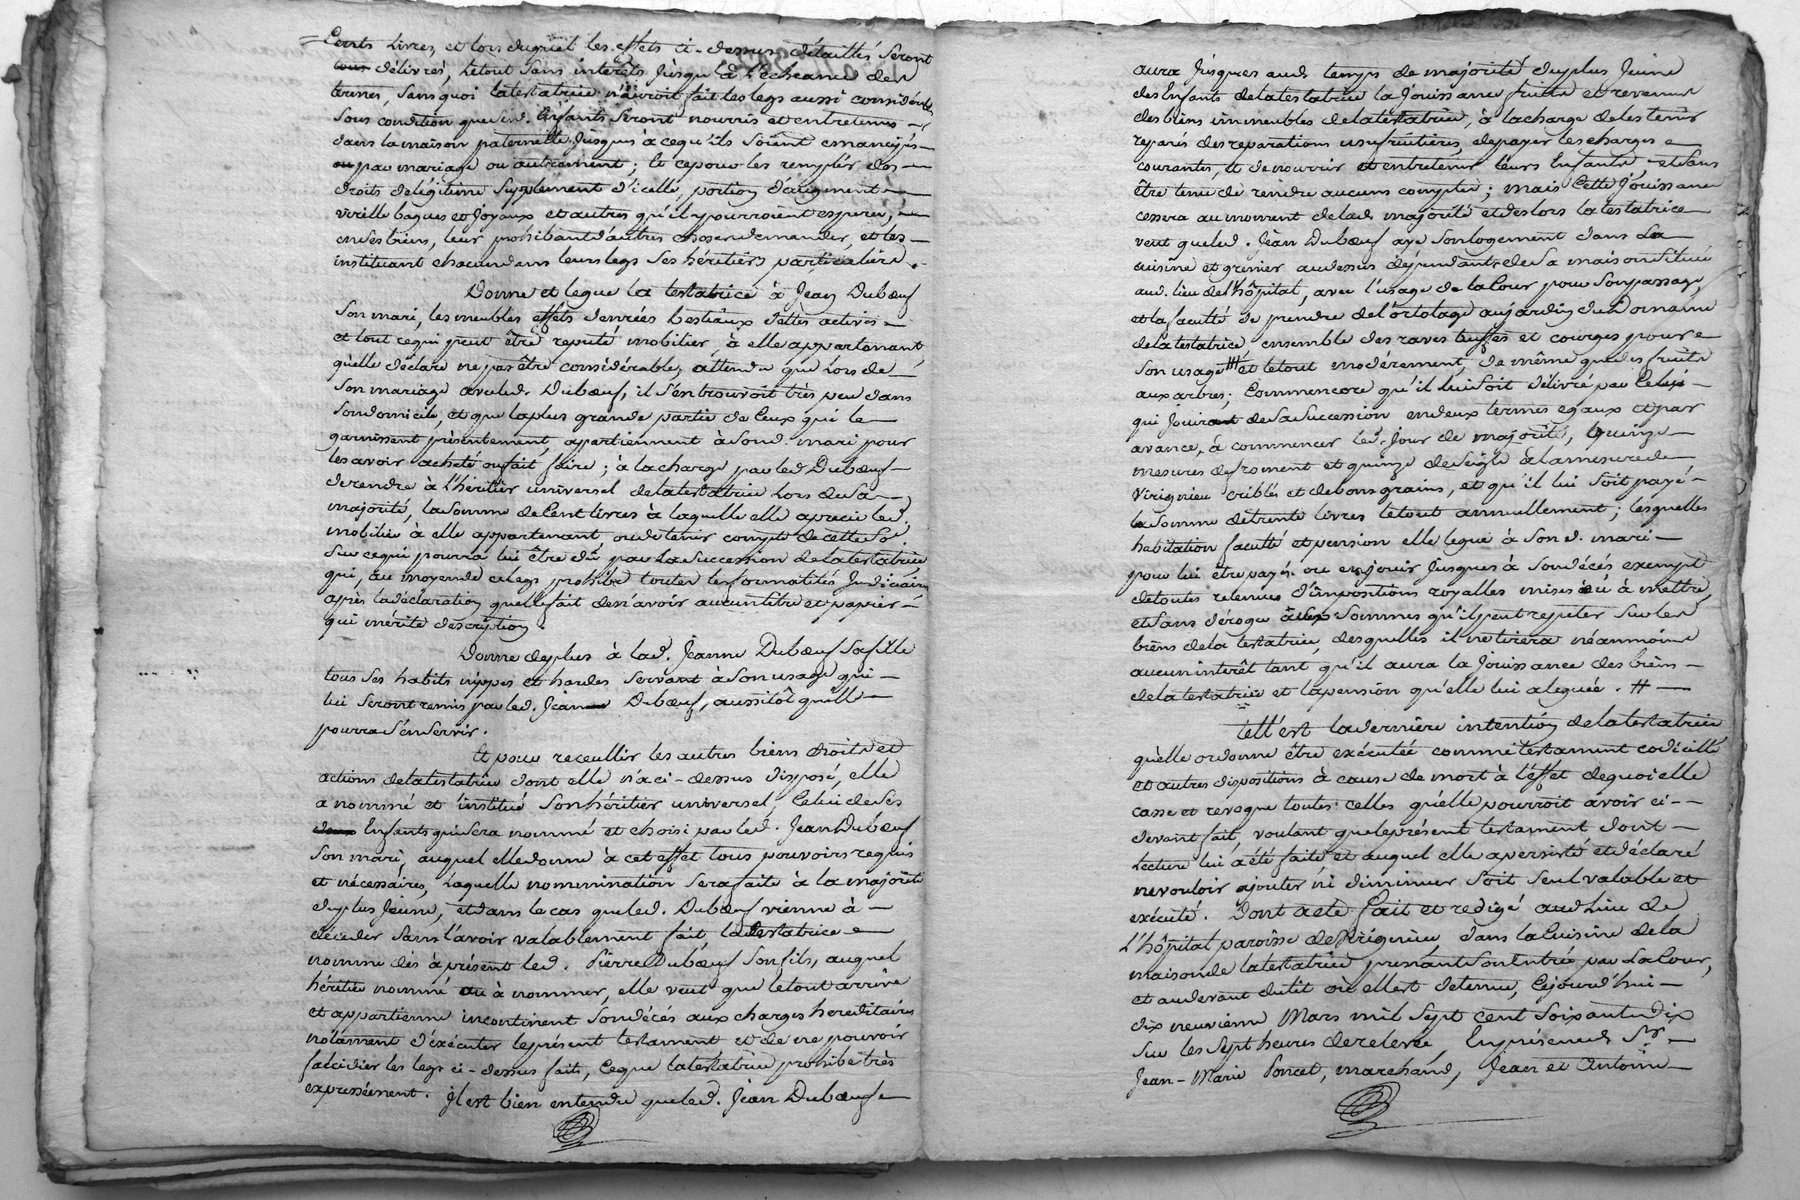 Cents livres, et lors duquel les effets ci-dessus détaillés seront
tous délivrés, le tout sans interêts jusqu'à l'echeance des
termes, sans quoi la testatrice n'auroit fait les legs aussi considérables
sous condition que sesd. Enfants seront nourris et entretenus
dans la maison paternelle jusques à ce qu'ils soient emancipés
ou par mariage ou autrement; et ce pour les remplir des
droits de légitime supplement d'icelle, portion d'augment
vireille bagues et joyaux et autres qu'ils y pourroient esperer,
en ses biens, leur prohibant d'autres choses demander, et les
instituant chacun dans leurs legs ses héritiers particuliers.
Donne et legue la testatrice à Jean Dubœuf
son mari, les meubles effets denrées bestiaux dettes actives
et tout ce qui peut être reputé mobilier, à elle appartenant,
qu'elle déclare ne pas être considérable, attendu que lors de
son mariage avec led. Dubœuf, il s'en trouvoit très peu dans
son domicile, et que la plus grande partie de ceux qui le
garnissent présentement, appartiennent à sond. mari pour
les avoir acheté ou fait faire; à la charge par led. Dubœuf
de rendre à l'héritier universel de la testatrice lors de sa
majorité, la somme de Cent livres à laquelle elle aprecie led.
mobilier à elle appartenant ou de tenir compte de cette so.
sur ce qui pourra lui être dû par la succession de la testatrice
qui, au moyen de ce legs prohibe toutes les formalités judiciaires
après la déclaration qu'elle fait de n'avoir aucun titre et papier
qui mérite description.
Donne de plus à lad. Jeanne Dubœuf sa fille
tous ses habits nippes et hardes servant à son usage qui
lui seront remis par led. Jean Dubœuf, aussitôt qu'elle
pourra s'en servir.
Et pour receuillir les autres biens droits et
actions de la testatrice dont elle n'a ci-dessus disposé, elle
a nommé et institué son héritier universel, Celui de ses
deux Enfants qui sera nommé et choisi par led. Jean Dubœuf
son mari, auquel elle donne à cet effet tous pouvoirs requis
et nécessaires, laquelle nommination sera faite à la majorité
du plus jeune, et dans le cas que led. Dubœuf vienne à
décéder sans l'avoir valablement fait la testatrice
nomme dès à présent led. Pierre Dubœuf son fils, auquel
héritier nommé ou à nommer, elle veut que le tout arrive
et appartienne incontinent son décés aux charges hereditaires
notament d'éxécuter le présent testament et de ne pouvoir
falcidier les legs ci-dessus faits, ce que la testatrice prohibe très
expressément. Il est bien entendu que led. Jean Dubœuf
aura jusques aud. temps de majorité du plus jeune
des Enfants de la testatrice la jouissance fruits et revenus
des biens immeubles de la testatrice, à la charge de les tenir
reparés des reparations usufruitières, de payer les charges
courantes, et de nourrir et entretenir leurs Enfants et sans
être tenu de rendre aucuns comptes; mais cette jouissance
cessera au moment de lad. majorité et dès lors la testatrice
veut que led. Jean Dubœuf aye son logement dans la
cuisine et grenier au dessus dépendants de sa maison située
aud. lieu de l'hôpital, avec l'usage de la cour pour son passage,
et la faculté de prendre de l'ortolage au jardin du Domaine
de la testatrice ensemble des raves truffes et courges pour
son usage et le tout modérement, de même que des fruits
aux arbres; Comme encore qu'il lui soit délivré par Celui
qui jouira de sa succession en deux termes egaux et par
avance, à commencer led. jour de majorité, quinze
mesures de froment et quinze de seigle à la mesure de
Virignieu criblés et de bons grains, et qu'il lui soit payé
la somme de trente livres le tout annuellement; lesquelles
habitation faculté et pension elle legue à son d. mari
pour lui être payés ou en jouir jusques à son décés exempt
de toutes retenues d'impositions royalles mises ou à mettre,
et sans déroger aux sommes qu'il peut repeter sur les
biens de la testatrice, desquelles il ne tirera néanmoins
aucun interêt tant qu'il aura la jouissance des biens
de la testatrice et la pension qu'elle lui a leguée. #
Tell'est la dernière intention de la testatrice
qu'elle ordonne être exécutée comme testament codicille
et autres dispositions à cause de mort à l'éffet de quoi elle
casse et revoque toutes celles qu'elle pourroit avoir ci-
devant fait, voulant que le présent testament dont
lecture lui a été faite et auquel elle a persisté et déclaré
ne vouloir ajouter ni diminuer soit seul valable et
exécuté. Dont acte fait et redigé aud. lieu de
l'hôpital paroisse de Virignieu, dans la Cuisine de la
maison de la testatrice prenant son entrée par la Cour,
et au devant du lit où elle est detenue, Cejourd'hui
dix neuvieme Mars mil sept cent soixante dix
sur les sept heures de relevée En présence de Sr.
Jean-Marie Poncet, marchand, Jean et Antoine